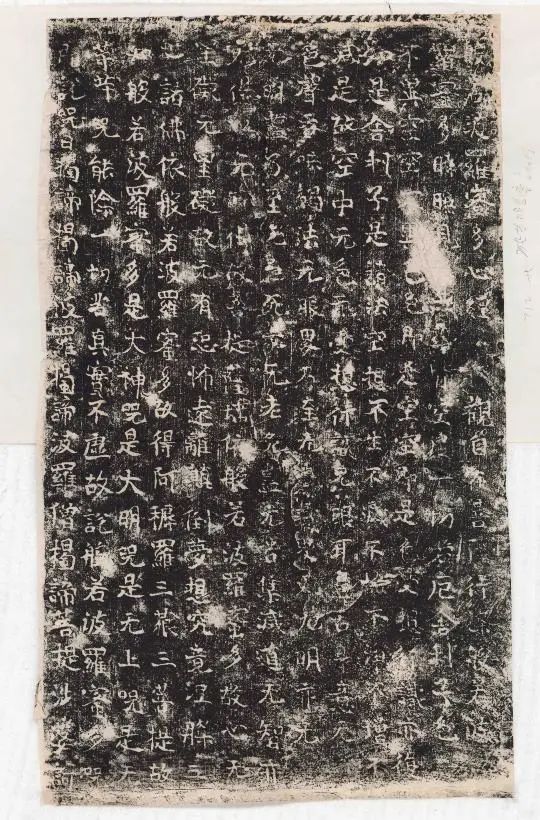 波羅蜜多心經觀自菩行深般若波
羅蜜多時照見一切苦厄舍利子色
不異空空色即是空空即是色受想識亦復
如是舍利子是諸法空相不生不滅不垢不淨不增不
減是故空中无色无受想行識无眼耳舌身意无
色聲香味觸法无眼界乃至无識界无明亦无
无明盡乃至无老死亦无老死盡无苦集滅道无智亦
无得以无所得故菩提薩埵依般若波羅蜜多故心无
罣礙无罣礙故无有恐怖遠離顛倒夢想究竟涅槃三
世諸佛依般若波羅蜜多故得阿耨羅三藐三菩提故
知般若波羅蜜多是大神咒是大明咒是无上咒是无
等等咒能除一切苦真實不虛故說般若波羅蜜多咒
即說咒曰揭諦揭諦波羅揭諦波羅僧揭諦菩提沙婆訶